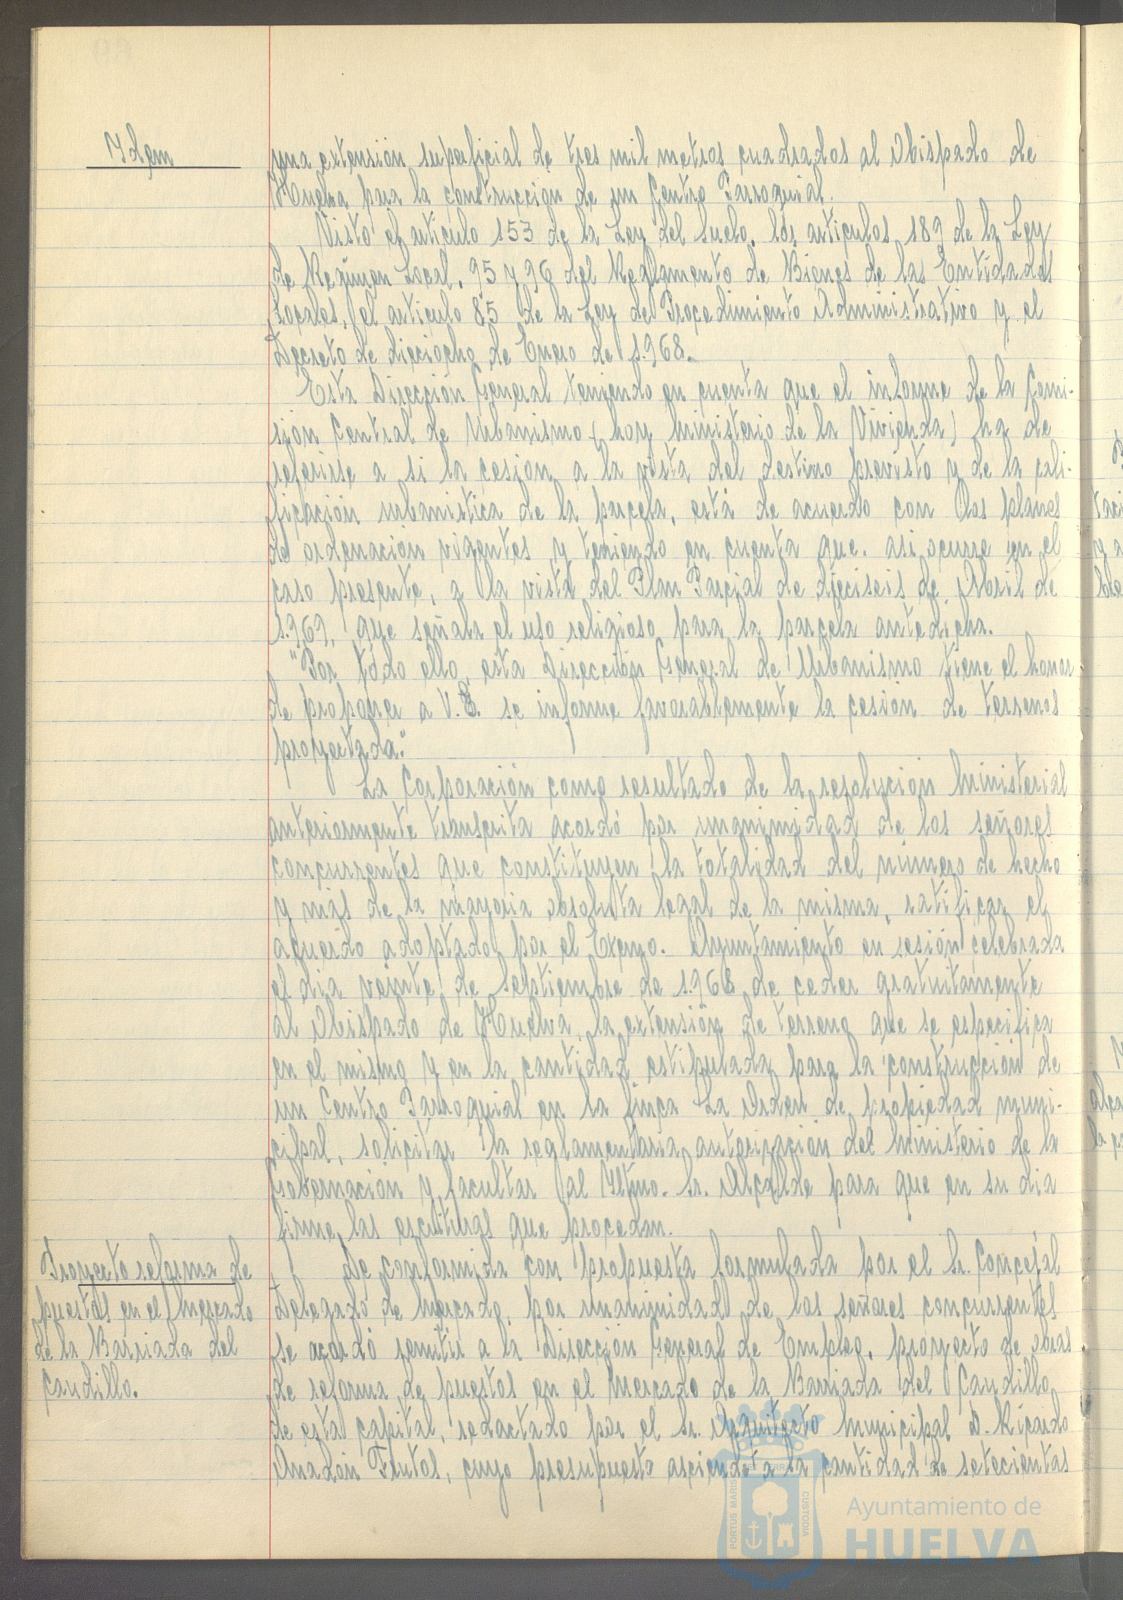 Idem
una extensión superficial de tres mil metros cuadrados al Obispado de
Huelva para la construcción de un Centro Parroquial.
Visto el artículo 153 de la Ley del Suelo, los artículos 189 de la Ley
de Regimen Local, 95 y 96 del Reglamento de Bienes de las Entidades
Locales, el artículo 85 de la Ley de Procedimiento Administrativo y el
Decreto de dieciocho de Enero de 1.968.
Esta Dirección General teniendo en cuenta que el informe de la Comi-
sión Central de Urbanismo (hoy Ministerio de la Vivienda) ha de
referirse a si la cesión, a la vista del destino previsto y de la cali-
ficación urbanística de la parcela, está de acuerdo con los planes
de ordenación vigentes y teniendo en cuenta que así ocurre en el
caso presente, a la vista del Plan Parcial de dieciseis de Abril de
1.969, que señala el uso religioso para la parcela antedicha.
"Por todo ello, esta Dirección General de Urbanismo tiene el honor
de proponer a V.E. se informe favorablemente la cesión de terrenos
proyectada."
La Corporación como resultado de la resolución Ministerial
anteriormente transcrita acordó por unanimidad de los señores
concurrentes que constituyen la totalidad del número de hecho
y más de la mayoria absoluta legal de la misma, ratificar el
acuerdo adoptado por el Excmo. Ayuntamiento en sesión celebrada
el dia veinte de Septiembre de 1.968 de ceder gratuitamente
al Obispado de Huelva, la extensión de terreno que se especifica
en el mismo y en la cantidad estipulada para la construcción de
un Centro Parroquial en la finca La Orden de propiedad muni-
cipal, solicitar la reglamentaria autorización del Ministerio de la
Gobernación y facultar al Iltmo. Sr. Alcalde para que en su dia
firme las escrituras que procedan.
Proyecto reforma de
puestos en el Mercado
de la Barriada del
Caudillo.
De conformida con propuesta formulada por el Sr. Concejal
Delegado de Mercado, por unanimidad de los señores concurrentes
se acordó remitir a la Dirección General de Empleo, proyecto de obras
de reforma de puestos en el Mercado de la Barriada del Caudillo,
de esta capital, redactado por el Sr. Arquitecto Municipal D. Ricardo
Anadón Frutos, cuyo presupuesto asciende a la cantidad de setecientas
PORTUS MARIS
CUSTODIA
Ayuntamiento de
HUELVA